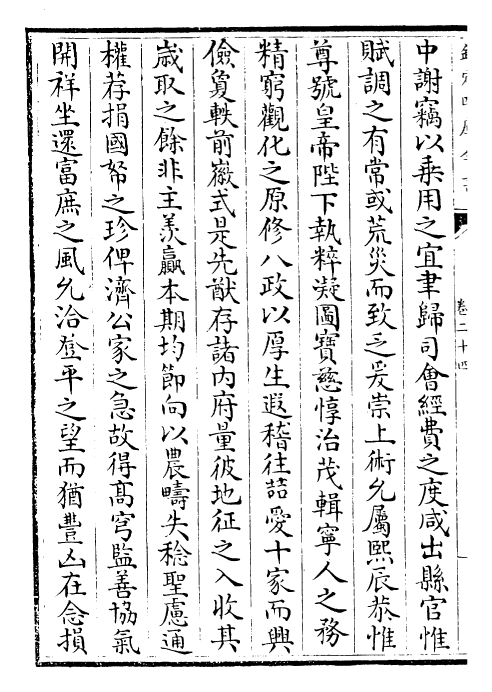 卷二十四
中謝竊以乗用之宜聿歸司會經費之度咸出縣官惟
賦調之有常或荒災而致乏爰崇上術允屬熙辰恭惟
尊號皇帝陛下執粹凝圖寶慈惇治茂輯寧人之務
精窮觀化之原修八政以厚生遐稽徃喆愛十家而興
儉敻軼前徽式是先猷存諸内府量彼地征之入收其
歳取之餘非主羡贏本期均節向以農疇失稔聖慮通
權荐捐國帑之珍俾濟公家之急故得髙穹監善協氣
開祥坐還富庶之風允洽登平之望而猶豐凶在念損